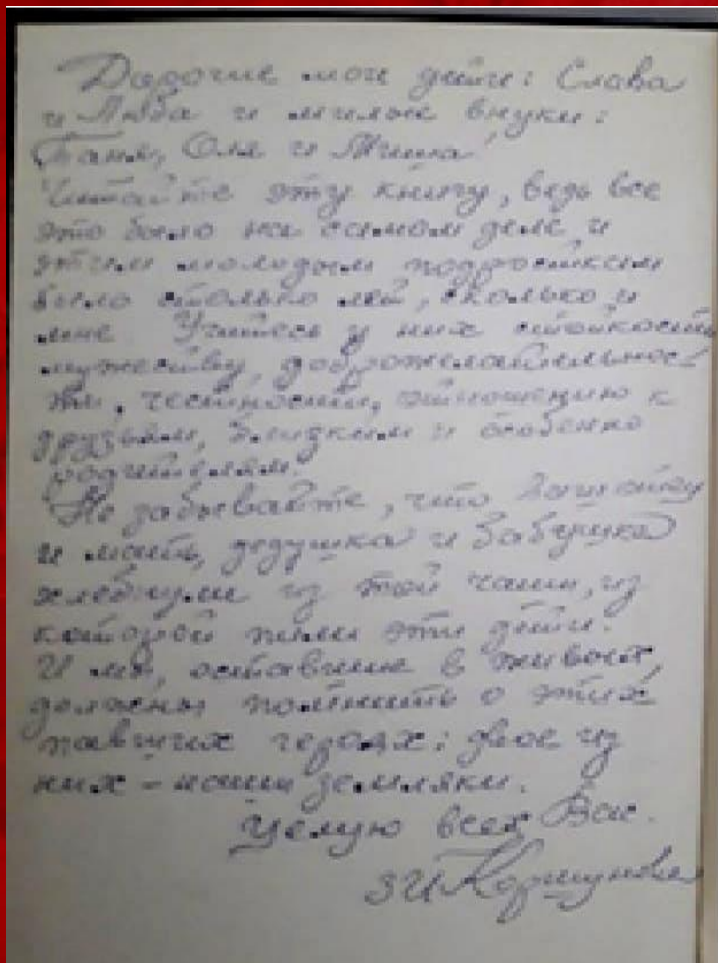 Дорогие мои дети: Слава
и Люба и милые внуки:
Таня, Оля и Миша!
Читайте эту книгу, ведь все
это было на самом деле и
этим молодым подросткам
было столько лет, сколько и
мне. Учитесь у них стойкости,
мужеству, доброжелательнос-
ти, честности, отношению к
друзьям, близким и особенно
родителям.
Не забывайте, что
и мать, дедушка и бабушка
хлебнули из той чаши, из
которой пили эти дети.
И мы, оставшие в живых,
должны помнить о этих
павших героях: двое из
них – наши земляки.
Целую всех Вас.
ЗИ Коршунова